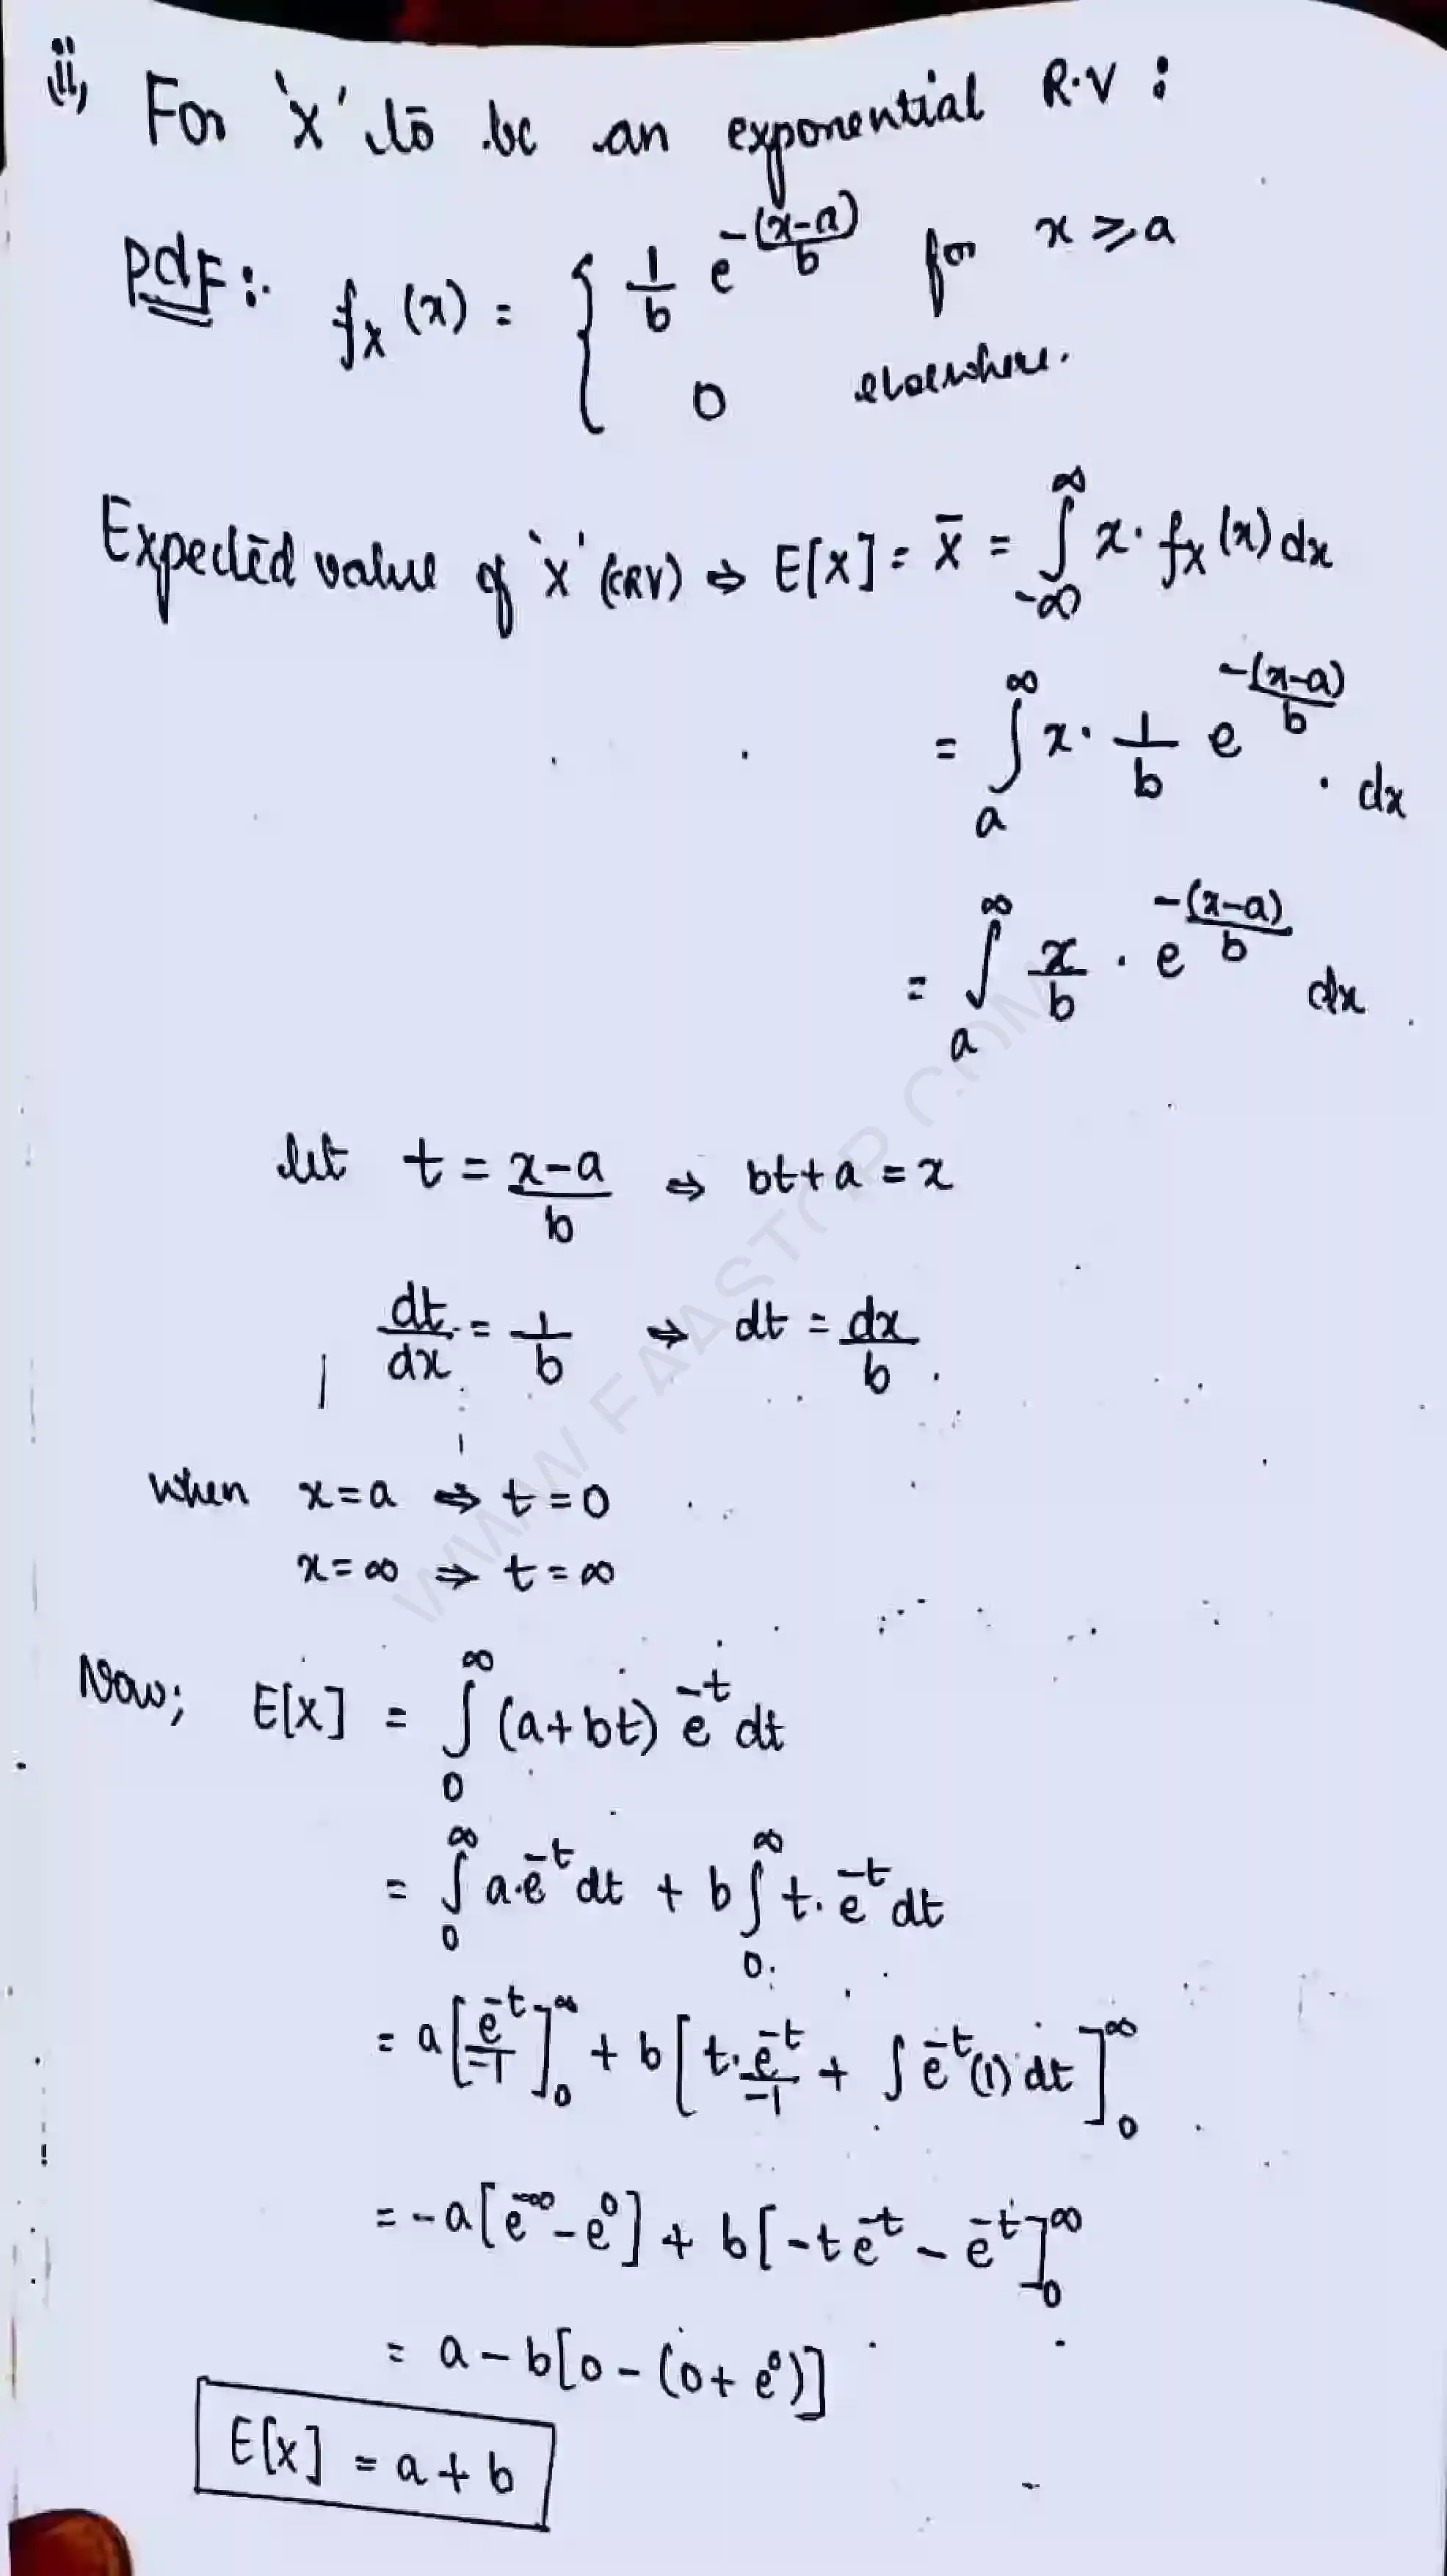 ii, For 'x' to be an exponential R.V :
Pdf :- fx (x) = { 1/b e^-(x-a)/b for x ≥ a
0 elsewhere.
Expected value of 'x' (CRV) ⇒ E[x] = x̄ = ∫_-∞^∞ x · fx (x) dx
= ∫_a^∞ x · 1/b e^-(x-a)/b · dx
= ∫_a^∞ x/b · e^-(x-a)/b dx
let t = x-a/b ⇒ bt+a = x
dt/dx = 1/b ⇒ dt = dx/b .
when x=a ⇒ t=0
x=∞ ⇒ t=∞
Now; E[x] = ∫_0^∞ (a+bt) e^-t dt
= ∫_0^∞ a·e^-t dt + b∫_0^∞ t. e^-t dt
= a[e^-t/-1]_0^∞ + b[t. e^-t/-1 + ∫ e^-t (1) dt]_0^∞
= -a[e^-∞ - e^0] + b[-t e^-t - e^-t]_0^∞
= a - b[0 - (0 + e^0)]
E[x] = a + b
WWW.FAASTOP.COM